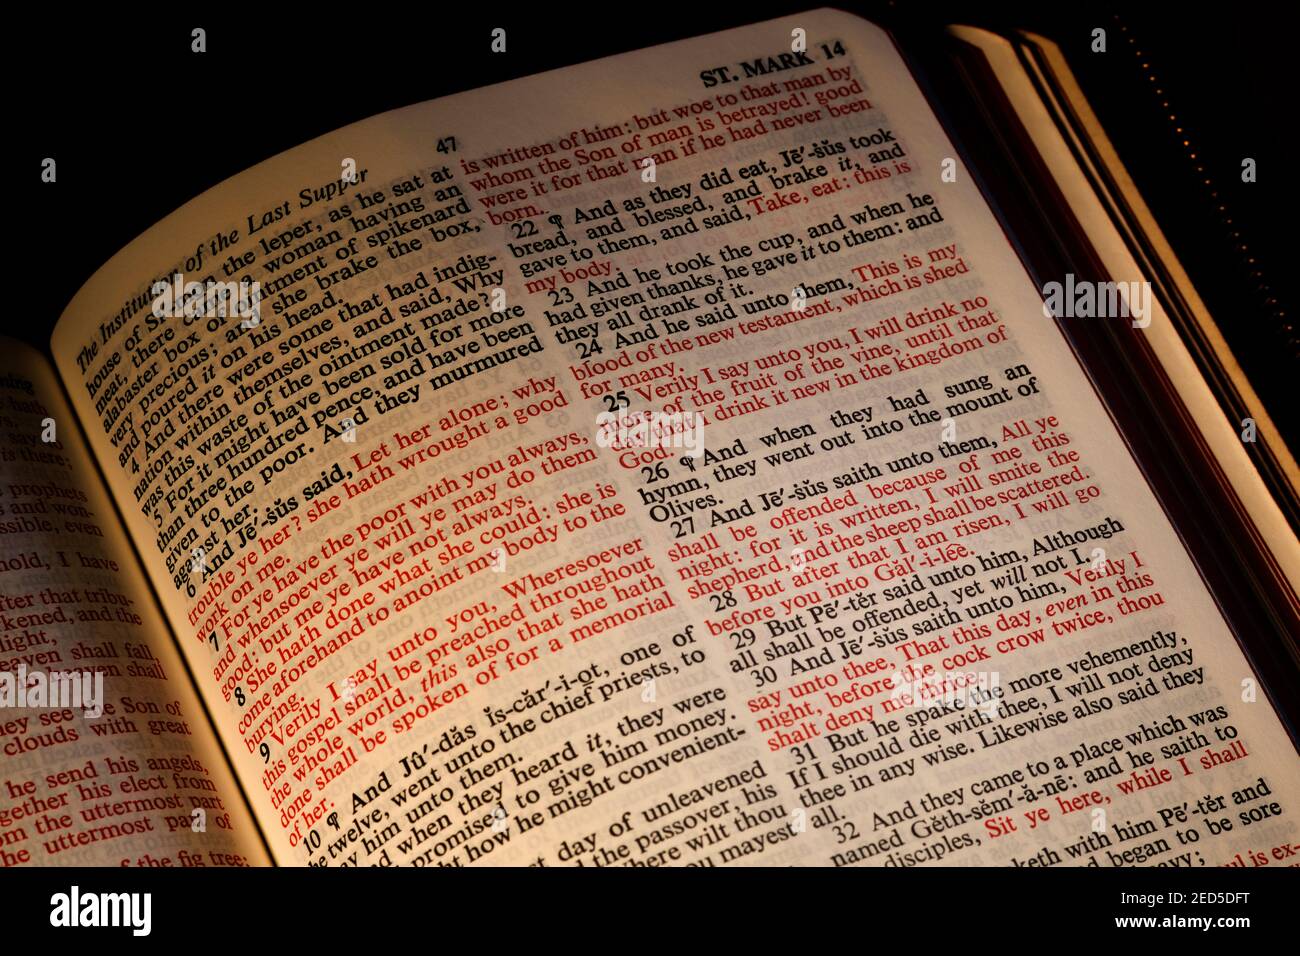 ning
hath
is there;
prophets
and won-
ssible, even
hold, I have
fter that tribu-
kened, and the
light,
eaven shall fall,
in heaven shall
hey see the Son of
clouds with great
he send his angels,
gether his elect from
om the uttermost part
he uttermost part of
of the fig tree:
The Institution of the Last Supper
47
ST. MARK 14
house of Simon the leper, as he sat at
meat, there came a woman having an
alabaster box of ointment of spikenard
very precious; and she brake the box,
and poured it on his head.
4 And there were some that had indig-
nation within themselves, and said, Why
was this waste of the ointment made?
5 For it might have been sold for more
than three hundred pence, and have been
given to the poor. And they murmured
against her.
6 And Jē′-ṡŭs said, Let her alone; why
trouble ye her? she hath wrought a good
work on me.
7 For ye have the poor with you always,
and whensoever ye will ye may do them
good: but me ye have not always.
8 She hath done what she could: she is
come aforehand to anoint my body to the
burying.
9 Verily I say unto you, Wheresoever
this gospel shall be preached throughout
the whole world, this also that she hath
done shall be spoken of for a memorial
of her.
10 ¶ And Jū′-dăs Ĭs-căr′-i-ot, one of
he twelve, went unto the chief priests, to
ay him unto them.
nd when they heard it, they were
promised to give him money.
ht how he might convenient-
st day of unleavened
d the passover, his
here wilt thou
u mayest
is written of him: but woe to that man by
whom the Son of man is betrayed! good
were it for that man if he had never been
born.
22 ¶ And as they did eat, Jē′-ṡŭs took
bread, and blessed, and brake it, and
gave to them, and said, Take, eat: this is
my body.
23 And he took the cup, and when he
had given thanks, he gave it to them: and
they all drank of it.
24 And he said unto them, This is my
blood of the new testament, which is shed
for many.
25 Verily I say unto you, I will drink no
more of the fruit of the vine, until that
day that I drink it new in the kingdom of
God.
26 ¶ And when they had sung an
hymn, they went out into the mount of
Olives.
27 And Jē′-ṡŭs saith unto them, All ye
shall be offended because of me this
night: for it is written, I will smite the
shepherd, and the sheep shall be scattered.
28 But after that I am risen, I will go
before you into Găl′-i-lēe.
29 But Pē′-tĕr said unto him, Although
all shall be offended, yet will not I.
30 And Jē′-ṡŭs saith unto him, Verily I
say unto thee, That this day, even in this
night, before the cock crow twice, thou
shalt deny me thrice.
31 But he spake the more vehemently,
If I should die with thee, I will not deny
thee in any wise. Likewise also said they
all.
32 And they came to a place which was
named Gĕth-sĕm′-ă-nē: and he saith to
disciples, Sit ye here, while I shall
keth with him Pē′-tĕr and
and began to be sore
avy;
ul is ex-
alamy
a
alamy
Image ID: 2ED5DFT
www.alamy.com